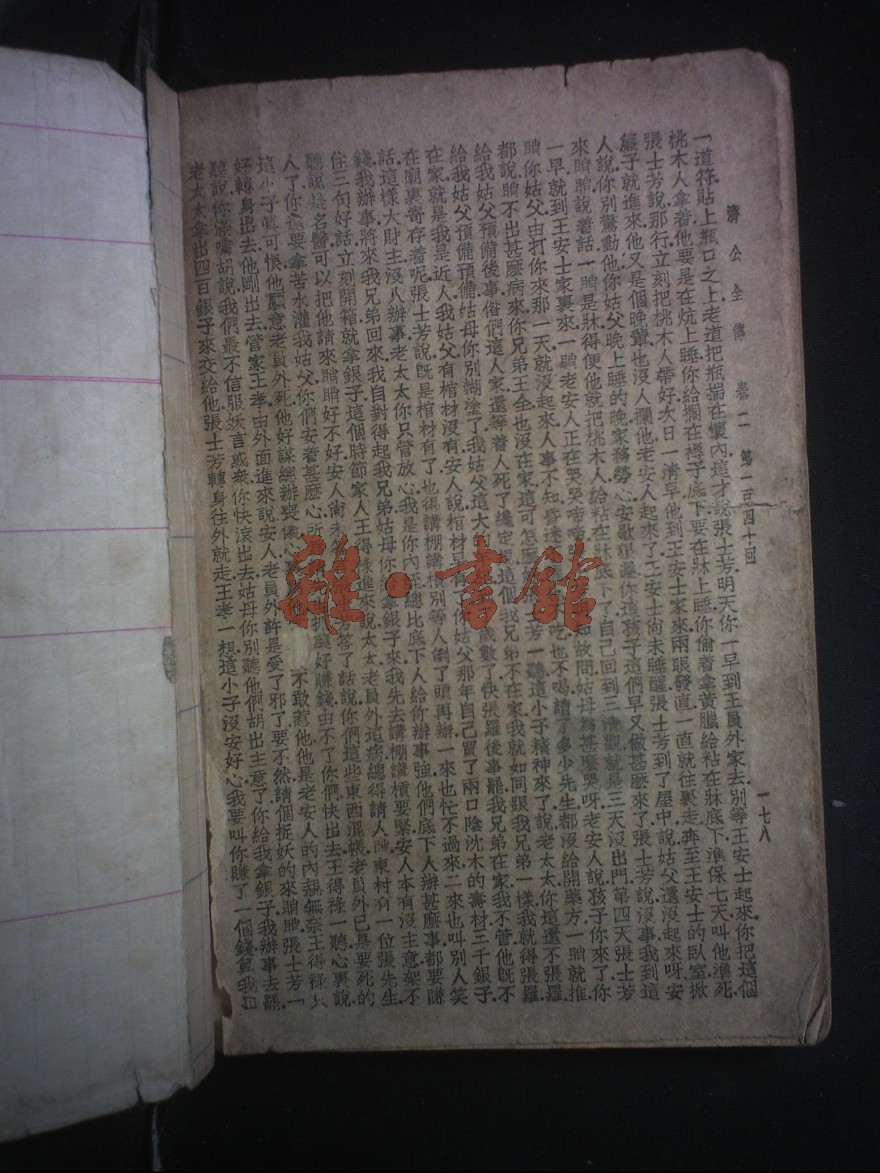 濟公全傳 卷二 第一百四十回 一七八
一道符.貼上瓶口之上.老道把瓶揣在懷內.這才說.張士芳.明天你一早到王員外家去.別等王安士起來.你把這個
桃木人拿着.他要是在炕上睡.你給擱在褥子底下.要在牀上睡.你偷着拿黃臘給粘在牀底下.準保七天叫他準死.
張士芳說.那行.立刻把桃木人帶好.次日一清早.他到王安士家來.兩眼發直.一直就往裏走.奔至王安士的臥室.掀
簾子就進來.他又是個晚輩.也沒人攔他.老安人起來了.王安士尚未睡醒.張士芳到了屋中.說.姑父還沒起來呀.安
人說.你別驚動他.你姑父晚上睡的晚.家務勞心.安歇
你這孩子這們早.又做甚麼來了.張士芳說.沒事.我到這
來瞧瞧.說着話.一瞧是牀.得便他就把桃木人給粘在牀底下了.自己回到三清觀.就是三天沒出門.第四天.張士芳
一早就到王安士家裏來.一瞧老安人正在哭哭啼啼
故問.姑母.為甚麼哭呀.老安人說.孩子你來了.你
瞧你姑父.由打你來那一天.就沒起來.人事不知.昏迷
吃也不喝.請了多少先生.都沒給開藥方.一瞧就推.
都說瞧不出甚麼病來.你兄弟王全也沒在家.這可怎麼
士芳一聽.這小子精神來了.說.老太太.你這還不張羅
給我姑父預備後事.俗們這人家.還等着人死了纔定
這個.我兄弟不在家.我就如同跟我兄弟一樣.我就得張羅
給我姑父預備預備.姑母你別糊塗了.我姑父這大
歲數了.快張羅後事罷.我兄弟在家.我不管他.旣不
在家.就是我是近人.我姑父有棺材沒有.安人說.棺材
你姑父那年自己買了兩口陰沈木的壽材.三千銀子.
在廟裏寄存着呢.張士芳說.旣是棺材有了.也得講棚講
別等人倒了頭再辦.一來也忙不過來.二來也叫別人笑
話.這樣大財主沒人辦事.老太太你只管放心.我是你內姪.總比底下人給你辦事強.他們底下人辦甚麼事都要賺
錢.我辦事.將來我兄弟回來.我自對得起我兄弟.姑母你
拿銀子來.我先去講棚講槓要緊.安人本有沒主意.架不
住三句好話.立刻開箱就拿銀子.這個時節.家人王得祿進來說.太太.老員外這病.總得請人瞧.東村有一位張先生.
聽說是名醫.可以把他請來瞧瞧好不好.安人尚未
芳答了話.說.你們這些東西混帳.老員外已是要死的
人了.你還要拿苦水灌我姑父.你們安着甚麼心.所
抓藥好賺錢.由不了你們.快出去.王得祿一聽.心裏說.
這小子眞可恨.他願意老員外死.他好謀總辦喪儀.心
不敢惹他.他是老安人的內親.無奈王得祿
好轉身出去.他剛出去.管家王孝由外面進來說.安人.老員外許是受了邪了.要不然.請個捉妖的來瞧瞧.張士芳一
聽.說.你滿嘴胡說.我們最不信服妖言惑衆.你快滾出去.姑母你別聽他們胡出主意了.你給我拿銀子.我辦事去罷.
老太太拿出四百銀子來.交給他.張士芳轉身往外就走.王孝一想.這小子沒安好心.我要叫你賺了一個錢.算我
雜·書館